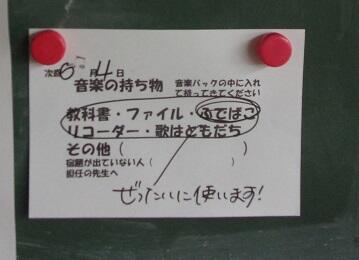 次回 6月4日
音楽の持ち物 音楽バックの中に入れ
て持ってきてください
教科書・ファイル・ふでばこ
リコーダー・歌はともだち
その他（　　　　　　　）
宿題が出ていない人（　　　　　　　）
担任の先生へ
ぜったいに使います!